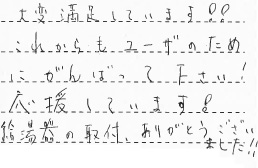 大変満足しています!!
これからもユーザのため
にがんばって下さい!
応援しています!
給湯器の取付、ありがとうございました!!